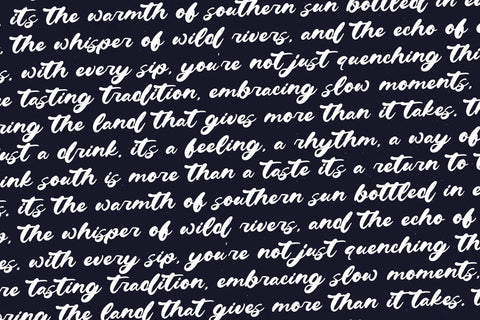 its the warmth of southern sun bottled in e
, the whisper of wild rivers, and the echo of
s. with every sip, you're not just quenching thi
re tasting tradition, embracing slow moments,
ring the land that gives more than it takes. t
just a drink, its a feeling, a rhythm, a way of
ink south is more than a taste its a return to t
s, its the warmth of southern sun bottled in e
p, the whisper of wild rivers, and the echo of
es. with every sip, you're not just quenching th
re tasting tradition, embracing slow moments,
ring the land that gives more than it takes. t